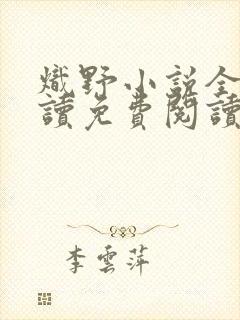 熾野小說全
讀免費閱讀
李雲萍